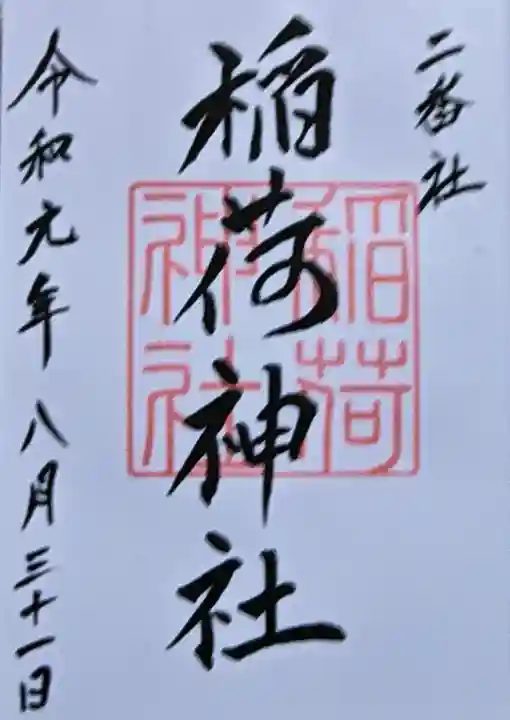 二番社
稲荷神社
稲荷
神社
令和元年八月三十一日